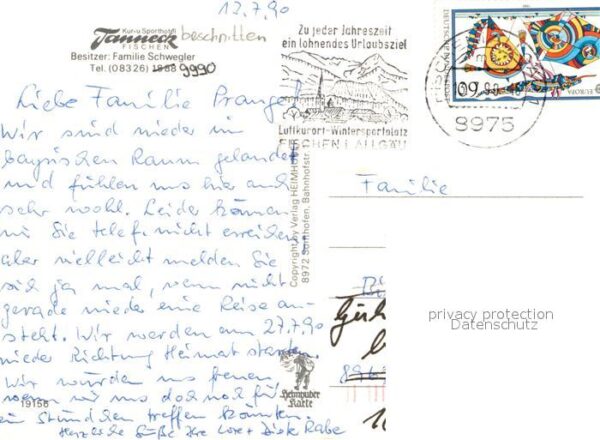 12.7.90
Kur-u Sporthotel
Tanneck
FISCHEN
beschnitten
Besitzer: Familie Schwegler
Tel. (08326) 1888 9990
Liebe Familie Prange!
Wir sind wieder im
bayrischen Raum gelandet
und fühlen uns hier auch
sehr wohl. Leider können
wir Sie telef. nicht erreichen,
aber vielleicht melden Sie
sich ja mal, wenn nicht
gerade wieder eine Reise an-
steht. Wir werden am 27.7.90
wieder Richtung Heimat starten.
Wir würden uns freuen
wenn wir uns doch noch für
ein Stündchen treffen könnten.
Herzliche Grüße Ihre Lore + Dieter Rabe
19156
Zu jeder Jahreszeit
ein lohnendes Urlaubsziel
Luftkurort-Wintersportplatz
FISCHEN I. ALLGÄU
Copyright by Verlag HEIMHUBER
8972 Sonthofen, Bahnhofstr.
Heimhuber
Karte
DEUTSCHE BUNDESPOST
EUROPA
60
FISCHEN
8975
Familie
privacy protection
Datenschutz